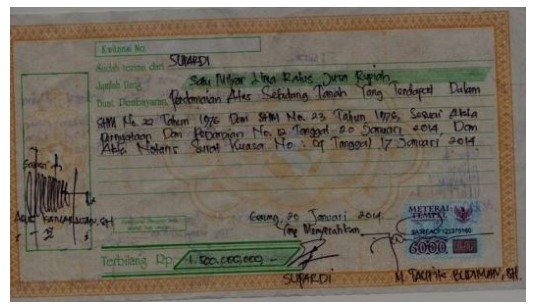 Kwitansi No.
Sudah terima dari SUPARDI
Jumlah Uang Satu Milyar Lima Ratus Juta Rupiah
Buat Pembayaran Perdamaian Atas Sebidang Tanah Yang Terdapat Dalam
SHM No. 22 Tahun 1976 Dan SHM No. 23 Tahun 1976, Sesuai Akta
Pernyataan Dan Perjanjian No. 12 Tanggal 20 Januari 2014, Dan
Akta Notaris Surat Kuasa No : 07 Tanggal 17 Januari 2014.
20 Januari 2014
Yang Menyerahkan
METERAI
TEMPEL
6000
Terbilang Rp. 1.500.000.000 -
SUPARDI
M. TAUFIK BUDIMAN, SH.